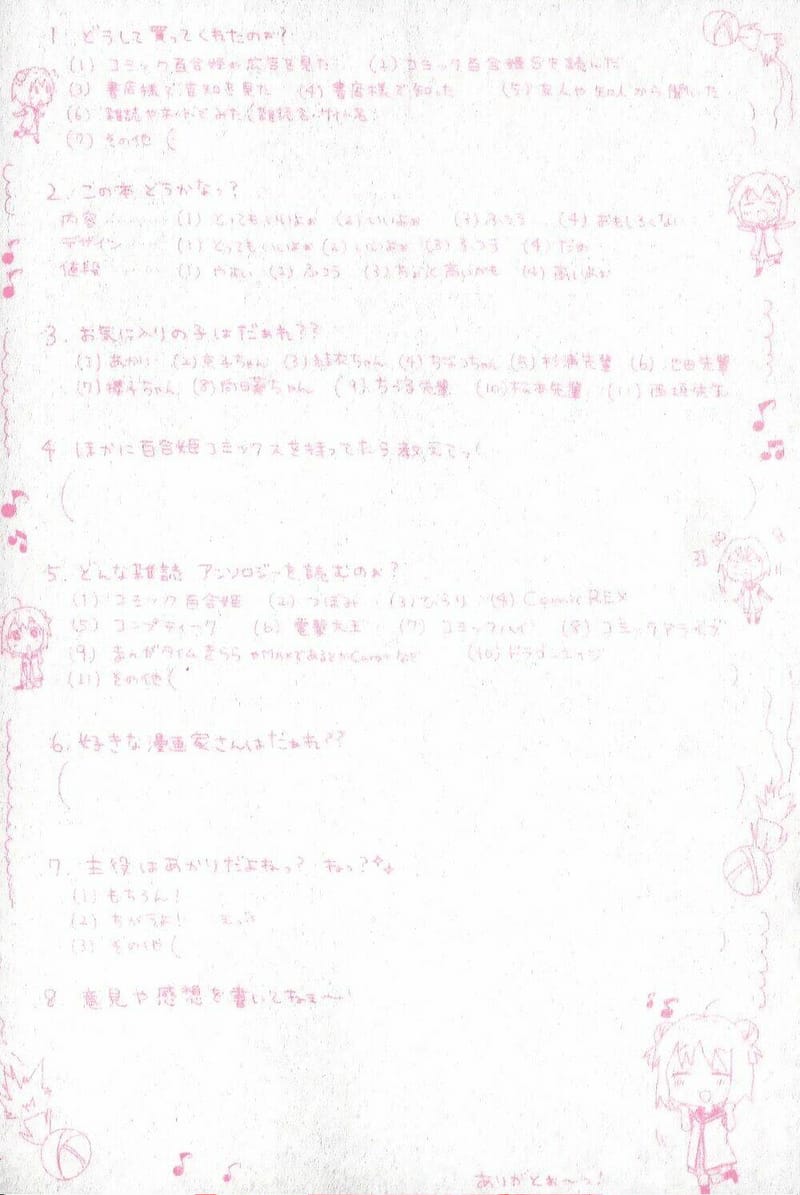 1. どうして買ってくれたのぉ?
(1) コミック百合姫の広告を見た (2) コミック百合姫Sを読んだ
(3) 書店様で告知を見た (4) 書店様で知った (5) 友人や知人から聞いた
(6) 雑誌やネットでみた(雑誌名・サイト名: )
(7) その他 (
2. この本どうかなっ?
内容 ……… (1) とってもいいよぉ (2) いいよぉ (3) ふつう (4) おもしろくない
デザイン …… (1) とってもいいよぉ (2) いいよぉ (3) ふつう (4) だめ
値段 ……… (1) やすい (2) ふつう (3) ちょっと高いかも (4) 高いよぉ
3. お気に入りの子はだぁれ??
(1) あかり (2) 京子ちゃん (3) 結衣ちゃん (4) ちなつちゃん (5) 杉浦先輩 (6) 池田先輩
(7) 櫻子ちゃん (8) 向日葵ちゃん (9) ちづる先輩 (10) 松本先輩 (11) 西垣先生
4 ほかに百合姫コミックスを持ってたら教えてっ!
( )
5. どんな雑誌 アンソロジーを読むのぉ?
(1) コミック百合姫 (2) つぼみ (3) ひらり (4) Comic REX
(5) コンプティーク (6) 電撃大王 (7) コミックハイ (8) コミックアライブ
(9) まんがタイムきらら やMAXであるとかCaratなど (10) ドラゴンエイジ
(11) その他 ( )
6. 好きな漫画家さんはだぁれ??
( )
7. 主役はあかりだよねっ? ねっ?
(1) もちろん!
(2) ちがうよ!
(3) その他 (
8 意見や感想を書いてねぇ〜!
ありがとぉ〜っ!